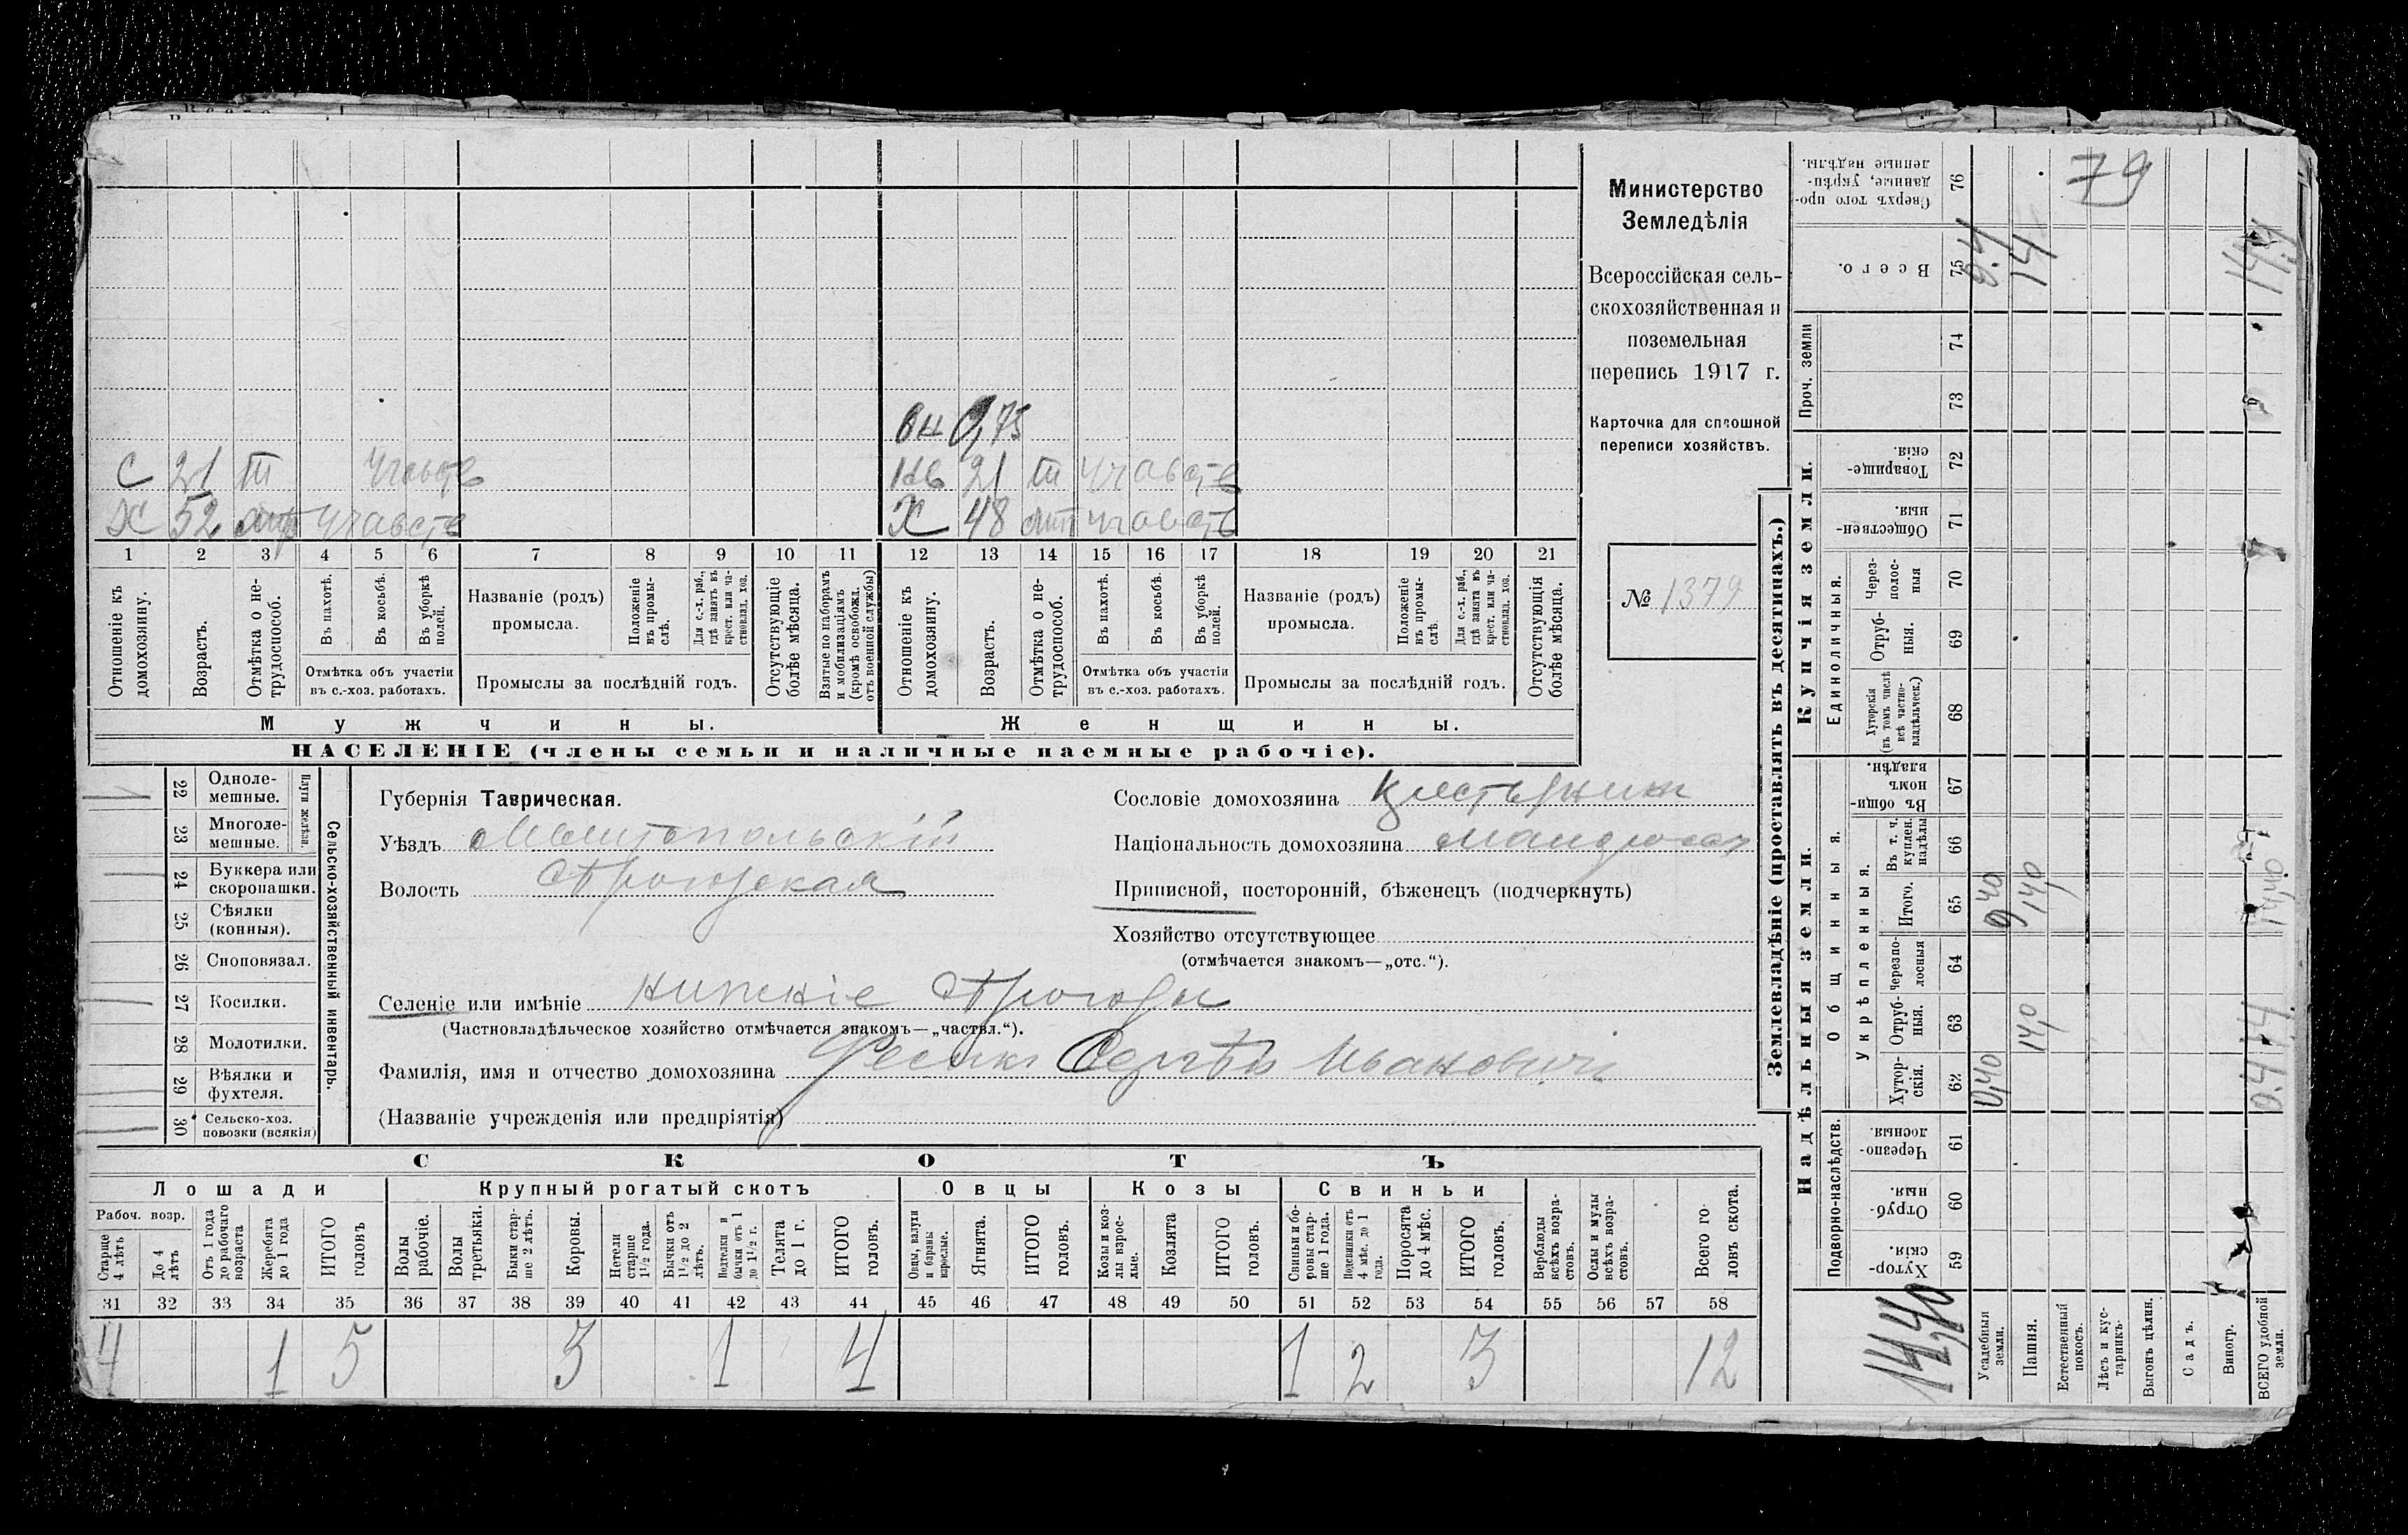 Министерство
Земледѣлія
Всероссійская сель-
скохозяйственная и
поземельная
перепись 1917 г.
Карточка для сплошной
переписи хозяйствъ.
№ 1379
79
вн 0,75
С 21 III участв
нев 21 III участв
Х 52 участв
Х 48 участв
1 2 3 4 5 6 7 8 9 10 11 12 13 14 15 16 17 18 19 20 21
Отношеніе къ домохозяину.
Возрастъ.
Отмѣтка о не-трудоспособ.
Въ пахотѣ.
Въ косьбѣ.
Въ уборкѣ полей.
Отмѣтка объ участіи
въ с.-хоз. работахъ.
Названіе (родъ)
промысла.
Положеніе въ промы-слѣ.
Для с.-х. раб., гдѣ занятъ въ крест. или ча-стновлад. хоз.
Промыслы за послѣдній годъ.
Отсутствующіе болѣе мѣсяца.
Взятые по наборамъ и мобилизаціямъ (кромѣ освобожд. отъ военной службы)
Отношеніе къ домохозяину.
Возрастъ.
Отмѣтка о не-трудоспособ.
Въ пахотѣ.
Въ косьбѣ.
Въ уборкѣ полей.
Отмѣтка объ участіи
въ с.-хоз. работахъ.
Названіе (родъ)
промысла.
Положеніе въ промы-слѣ.
Для с.-х. раб., гдѣ занята въ крест. или ча-стновлад. хоз.
Промыслы за послѣдній годъ.
Отсутствующія болѣе мѣсяца.
Мужчины.
Женщины.
НАСЕЛЕНІЕ (члены семьи и наличные наемные рабочіе).
Сельско-хозяйственный инвентарь.
Плуги желѣзн.
22 Одноле-мешные.
23 Многоле-мешные.
24 Буккера или скоропашки.
25 Сѣялки (конныя).
26 Сноповязал.
27 Косилки.
28 Молотилки.
29 Вѣялки и фухтеля.
30 Сельско-хоз. повозки (всякія)
Губернія Таврическая.
Уѣздъ Мелитопольскій
Волость
Сословіе домохозяина
Національность домохозяина
Приписной, посторонній, бѣженецъ (подчеркнуть)
Хозяйство отсутствующее
(отмѣчается знакомъ—„отс.“).
Селеніе или имѣніе
(Частновладѣльческое хозяйство отмѣчается знакомъ—„частвл.“).
Фамилія, имя и отчество домохозяина Сергѣй Ивановичъ
(Названіе учрежденія или предпріятія)
СКОТЪ
Лошади
Крупный рогатый скотъ
Овцы
Козы
Свиньи
Рабоч. возр.
Старше 4 лѣтъ
До 4 лѣтъ
Отъ 1 года до рабочаго возраста
Жеребята до 1 года
ИТОГО головъ
Волы рабочіе.
Волы третьяки.
Быки стар-ше 2 лѣтъ.
Коровы.
Нетели старше 1 1/2 года.
Бычки отъ 1 1/2 до 2 лѣтъ.
Подтелки и бычки отъ 1 до 1 1/2 г.
Телята до 1 г.
ИТОГО головъ.
Овцы, валухи и бараны взрослые.
Ягнята.
ИТОГО головъ.
Козы и коз-лы взрос-лые.
Козлята
ИТОГО головъ.
Свиньи и бо-ровы стар-ше 1 года.
Подсвинки отъ 4 мѣс. до 1 года.
Поросята до 4 мѣс.
ИТОГО головъ.
Верблюды всѣхъ возра-стовъ.
Ослы и мулы всѣхъ возра-стовъ.
Всего го-ловъ скота.
31 32 33 34 35 36 37 38 39 40 41 42 43 44 45 46 47 48 49 50 51 52 53 54 55 56 57 58
4 1 5 3 1 4 1 2 3 12
Землевладѣніе (проставлять въ десятинахъ.)
Надѣльныя земли.
Купчія земли.
Подворно-наслѣдств.
Общинныя.
Укрѣпленныя.
Единоличныя.
Проч. земли
Хутор-скія. 59
Отруб-ныя. 60
Черезпо-лосныя. 61
Хутор-скія. 62
Отруб-ныя. 63
Черезпо-лосныя 64
Итого. 65
Въ т. ч. куплен. надѣлы 66
Въ общи-номъ владѣн. 67
Хуторскія (въ томъ числѣ всѣ частно-владѣльческ.) 68
Отруб-ныя. 69
Через-полос-ныя 70
Обществен-ныя. 71
Товарище-скія. 72
73
74
Всего. 75
Сверхъ того про-данные, укрѣп-ленные надѣлы. 76
Усадебныя земли. 0,40 0,40 0.4
Пашня. 14,0 14,0 14
Естественный покосъ.
Лѣсъ и кус-тарникъ.
Выгонъ цѣлин.
Садъ.
Виногр.
ВСЕГО удобной земли.
14,40